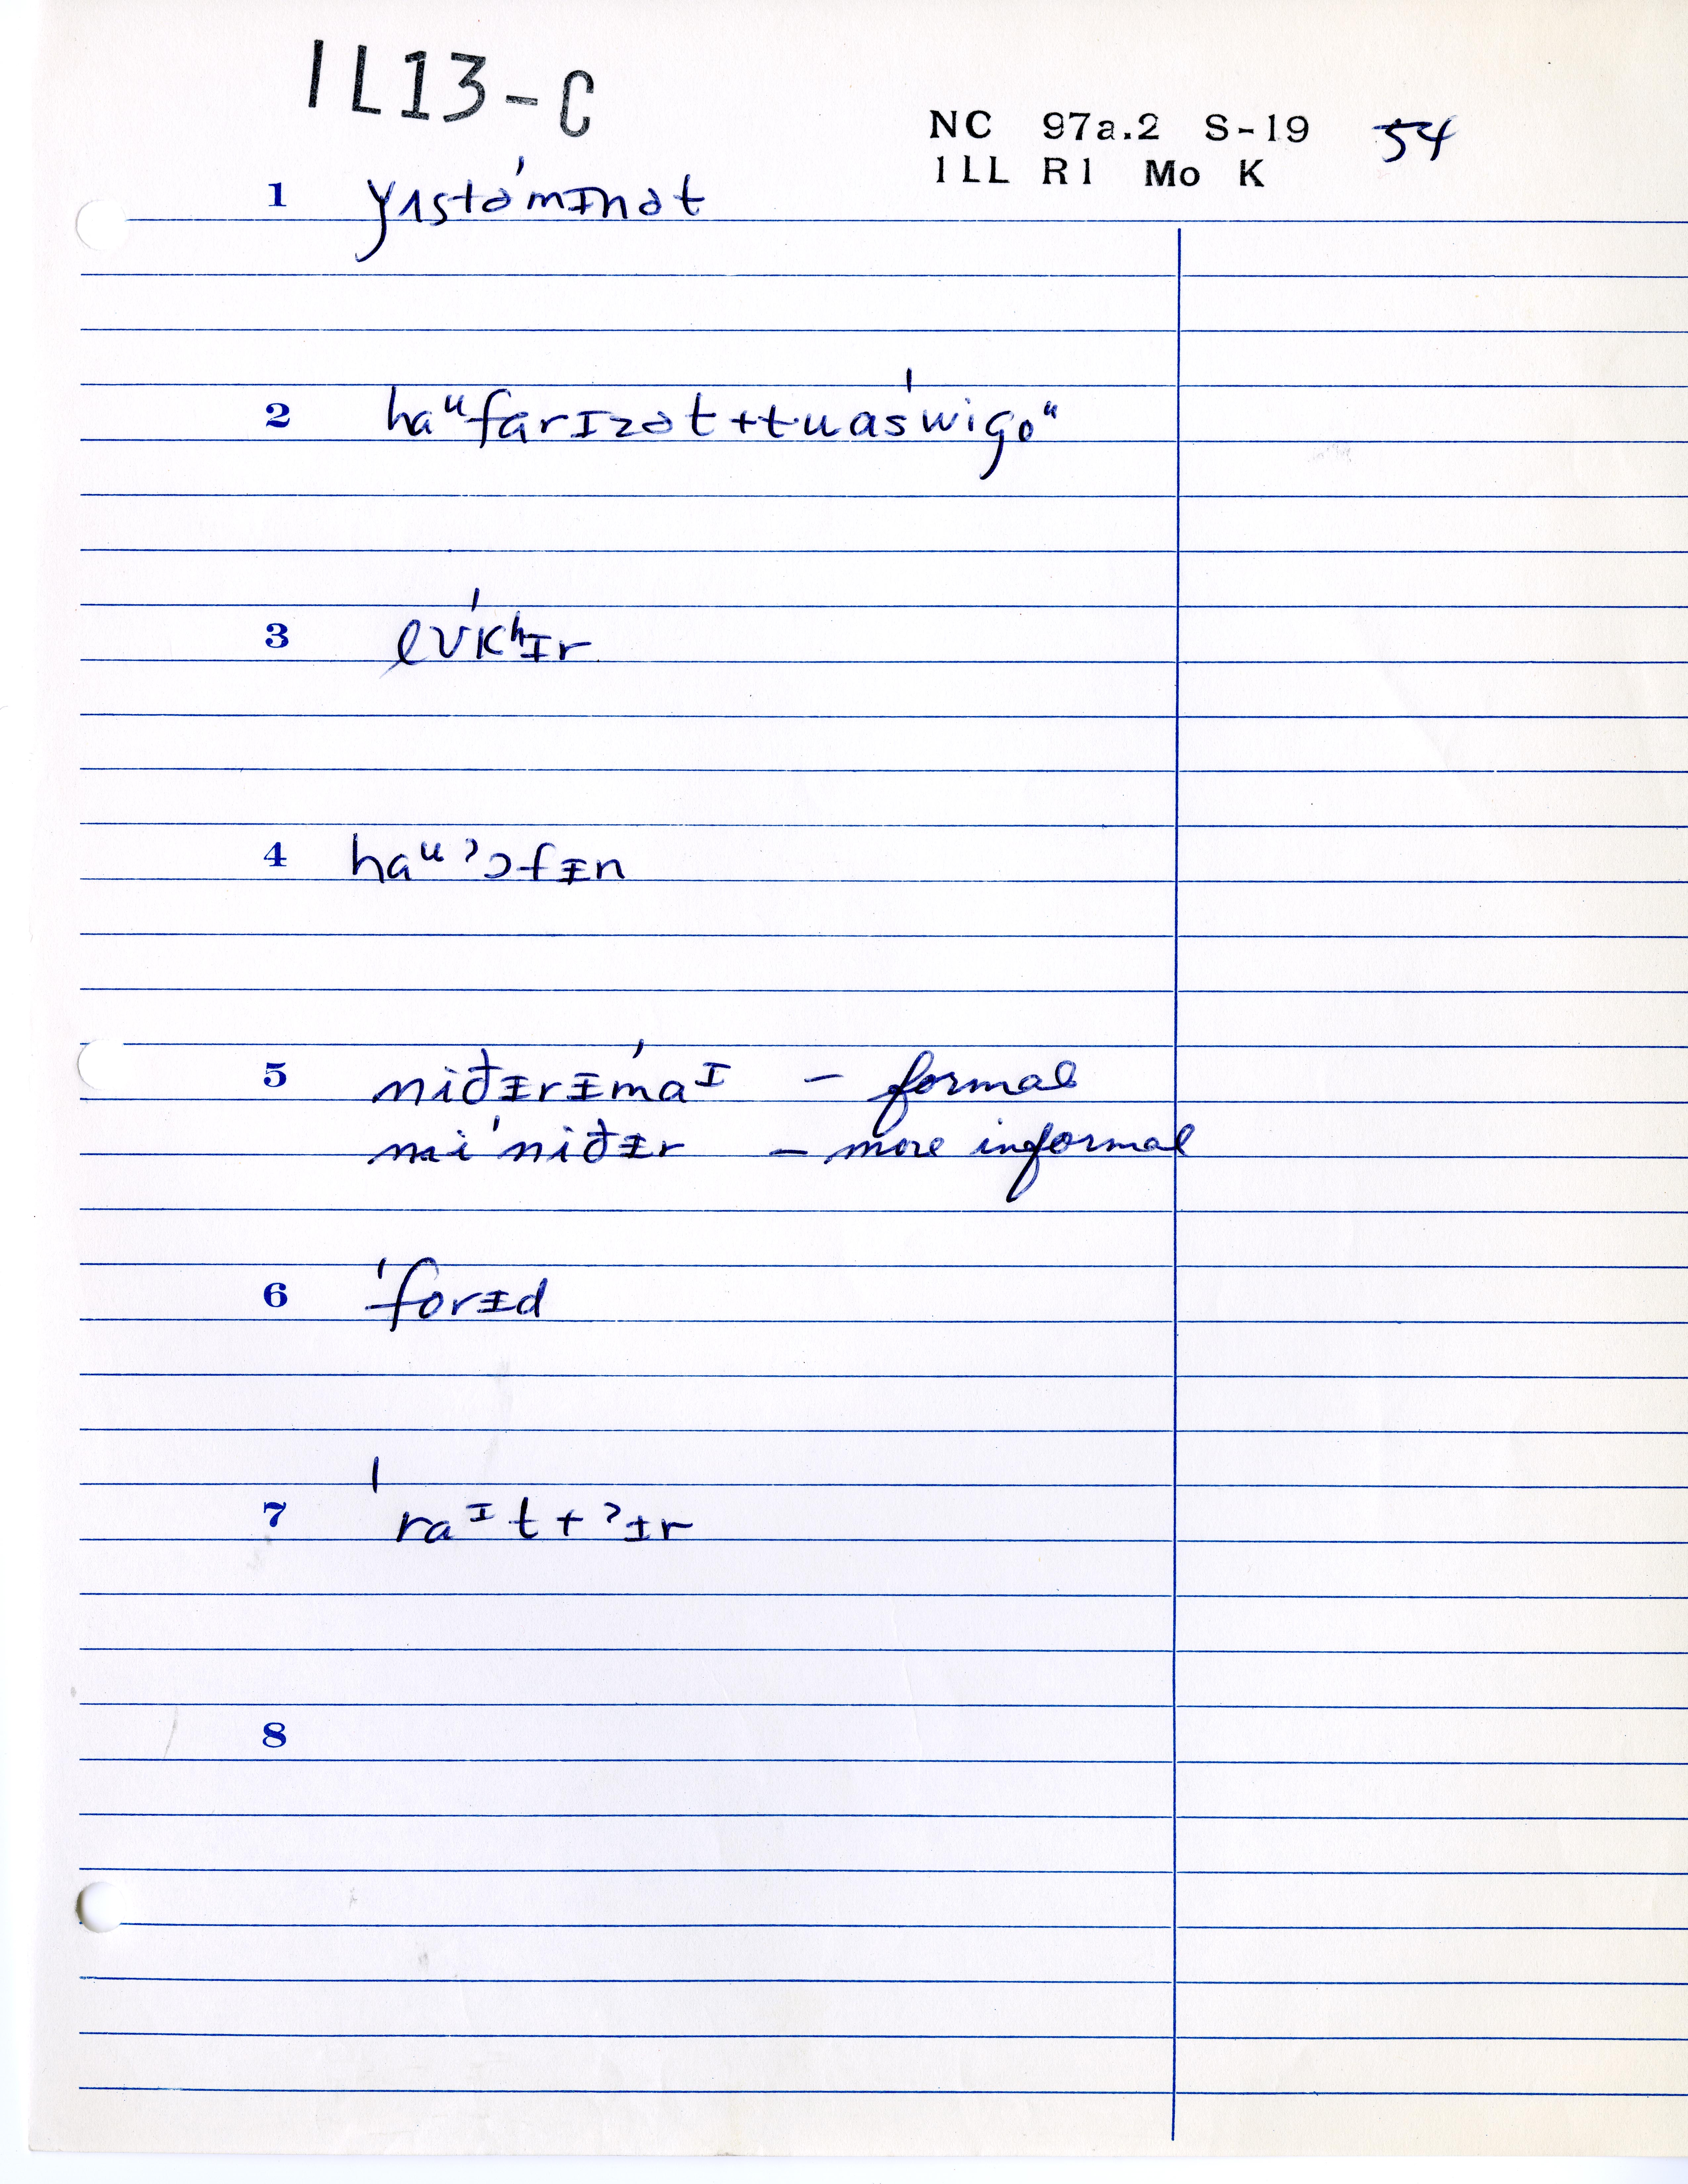 IL13-C
NC 97a.2 S-19 54
ILL R1 Mo K
1 yɪstə'mɪnət
2 haᵘfarɪzət+tuas'wigoᵘ
3 lʊ'kʰɪr
4 haᵘ ʔɔfᵻn
5 niđᵻrᵻ'maᴵ – formal
mi'niđᵻr – more informal
6 'forᵻd
7 'raᴵt+ʔᵻr
8